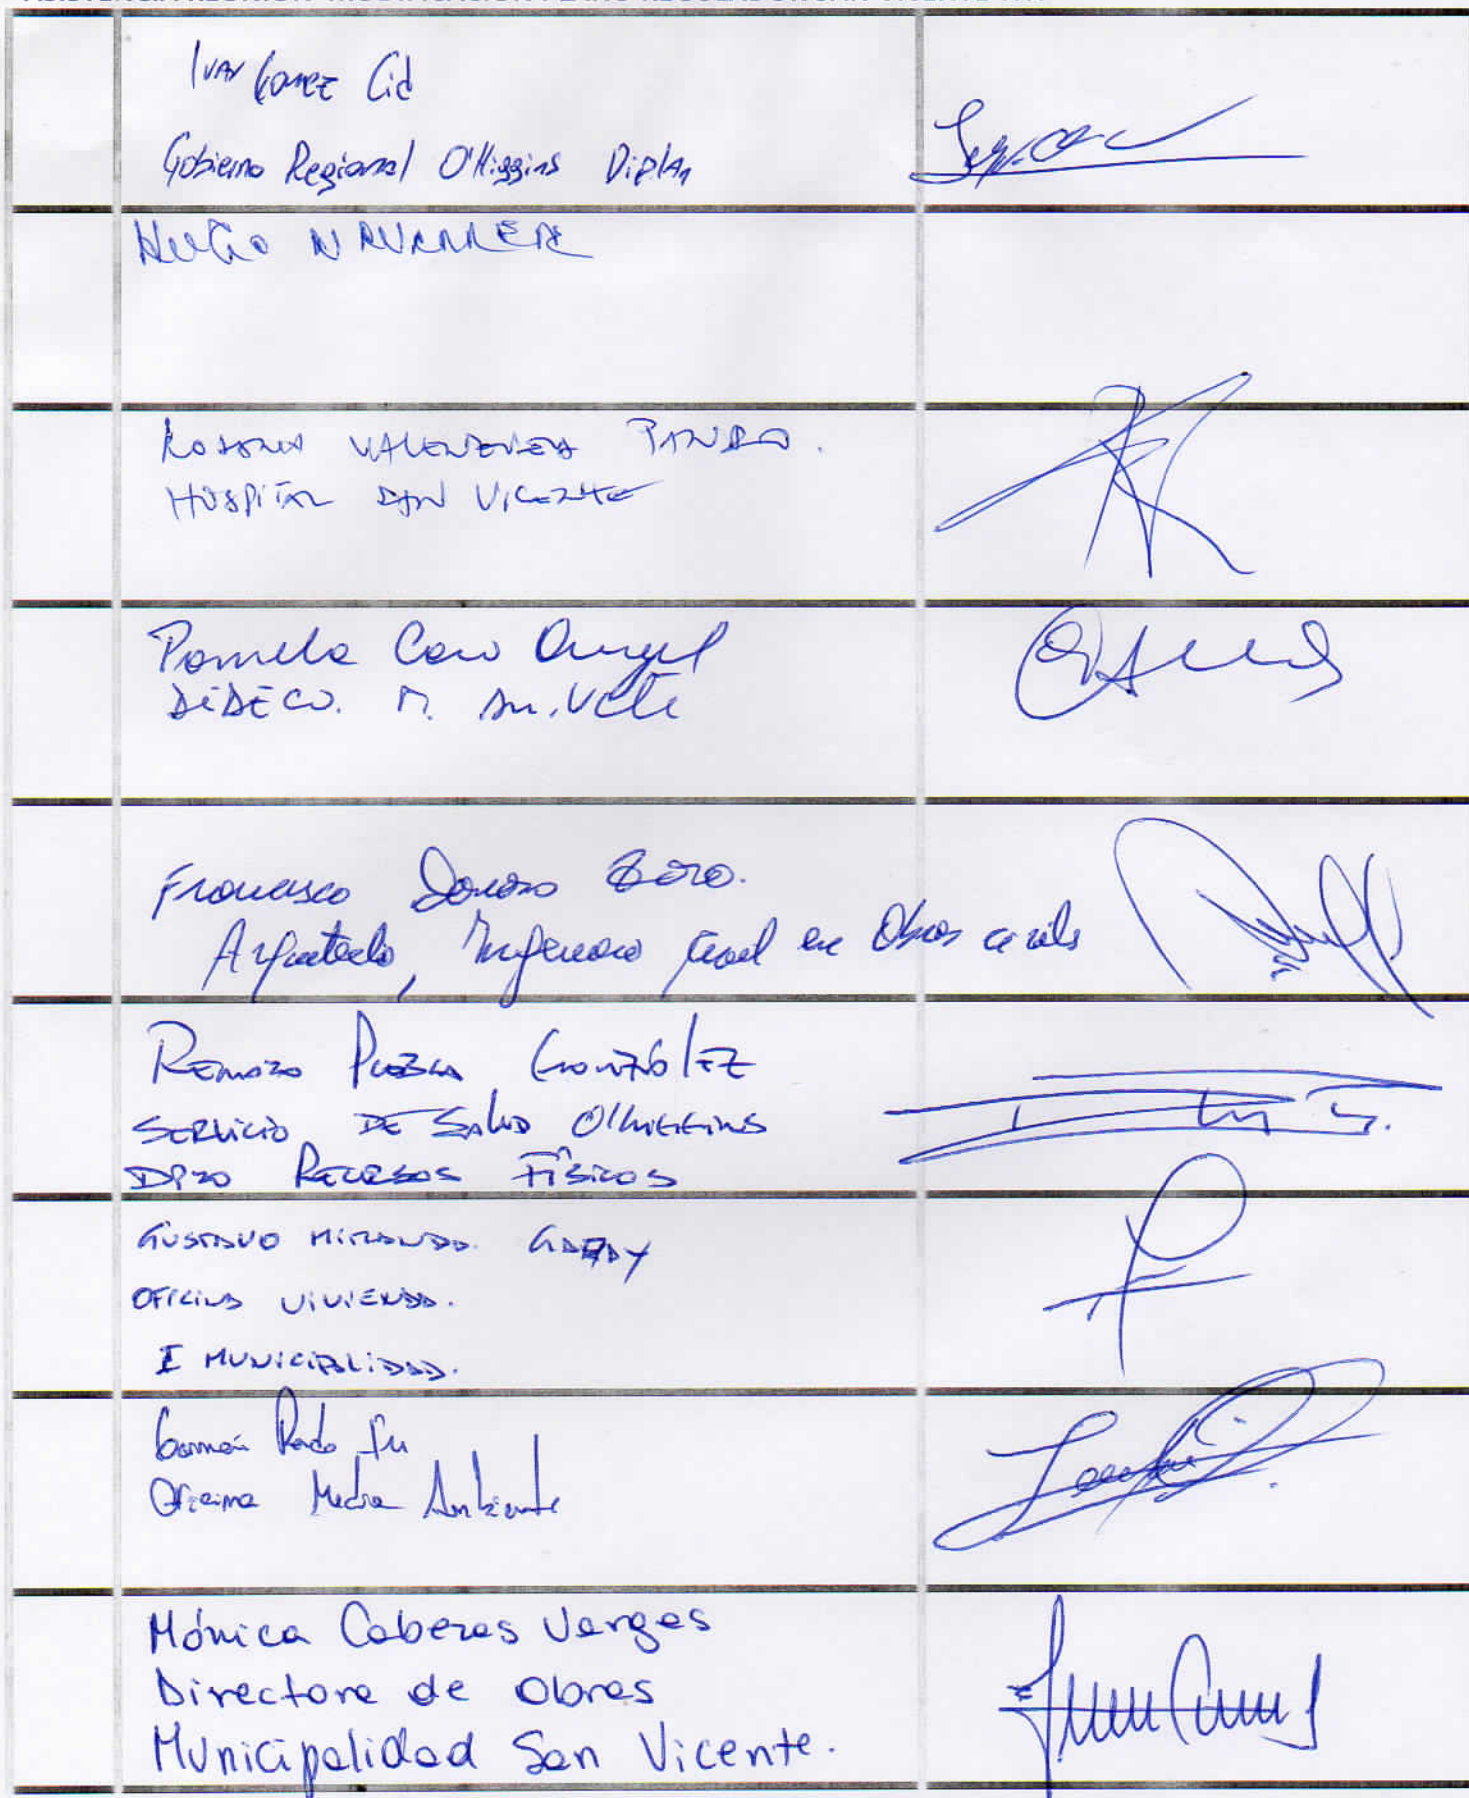 Ivan Gomez Cid
Gobierno Regional O'Higgins Diplan
HUGO NAVARRETE
ROSANA VALENZUELA
HOSPITAL SAN VICENTE
Pamela Caro Angel
DIDECO. M. Sn. Vcte
Francisco Donoso
Arquitecto, Ingeniero Civil en Obras civiles
RENATO PUEBLA GONZÁLEZ
SERVICIO DE SALUD O'HIGGINS
DPTO RECURSOS FÍSICOS
GUSTAVO MIRANDA GARAY
OFICINA VIVIENDA.
I MUNICIPALIDAD.
Prado
Oficina Medio Ambiente
Mónica Cabezas Vargas
Directora de Obras
Municipalidad San Vicente.